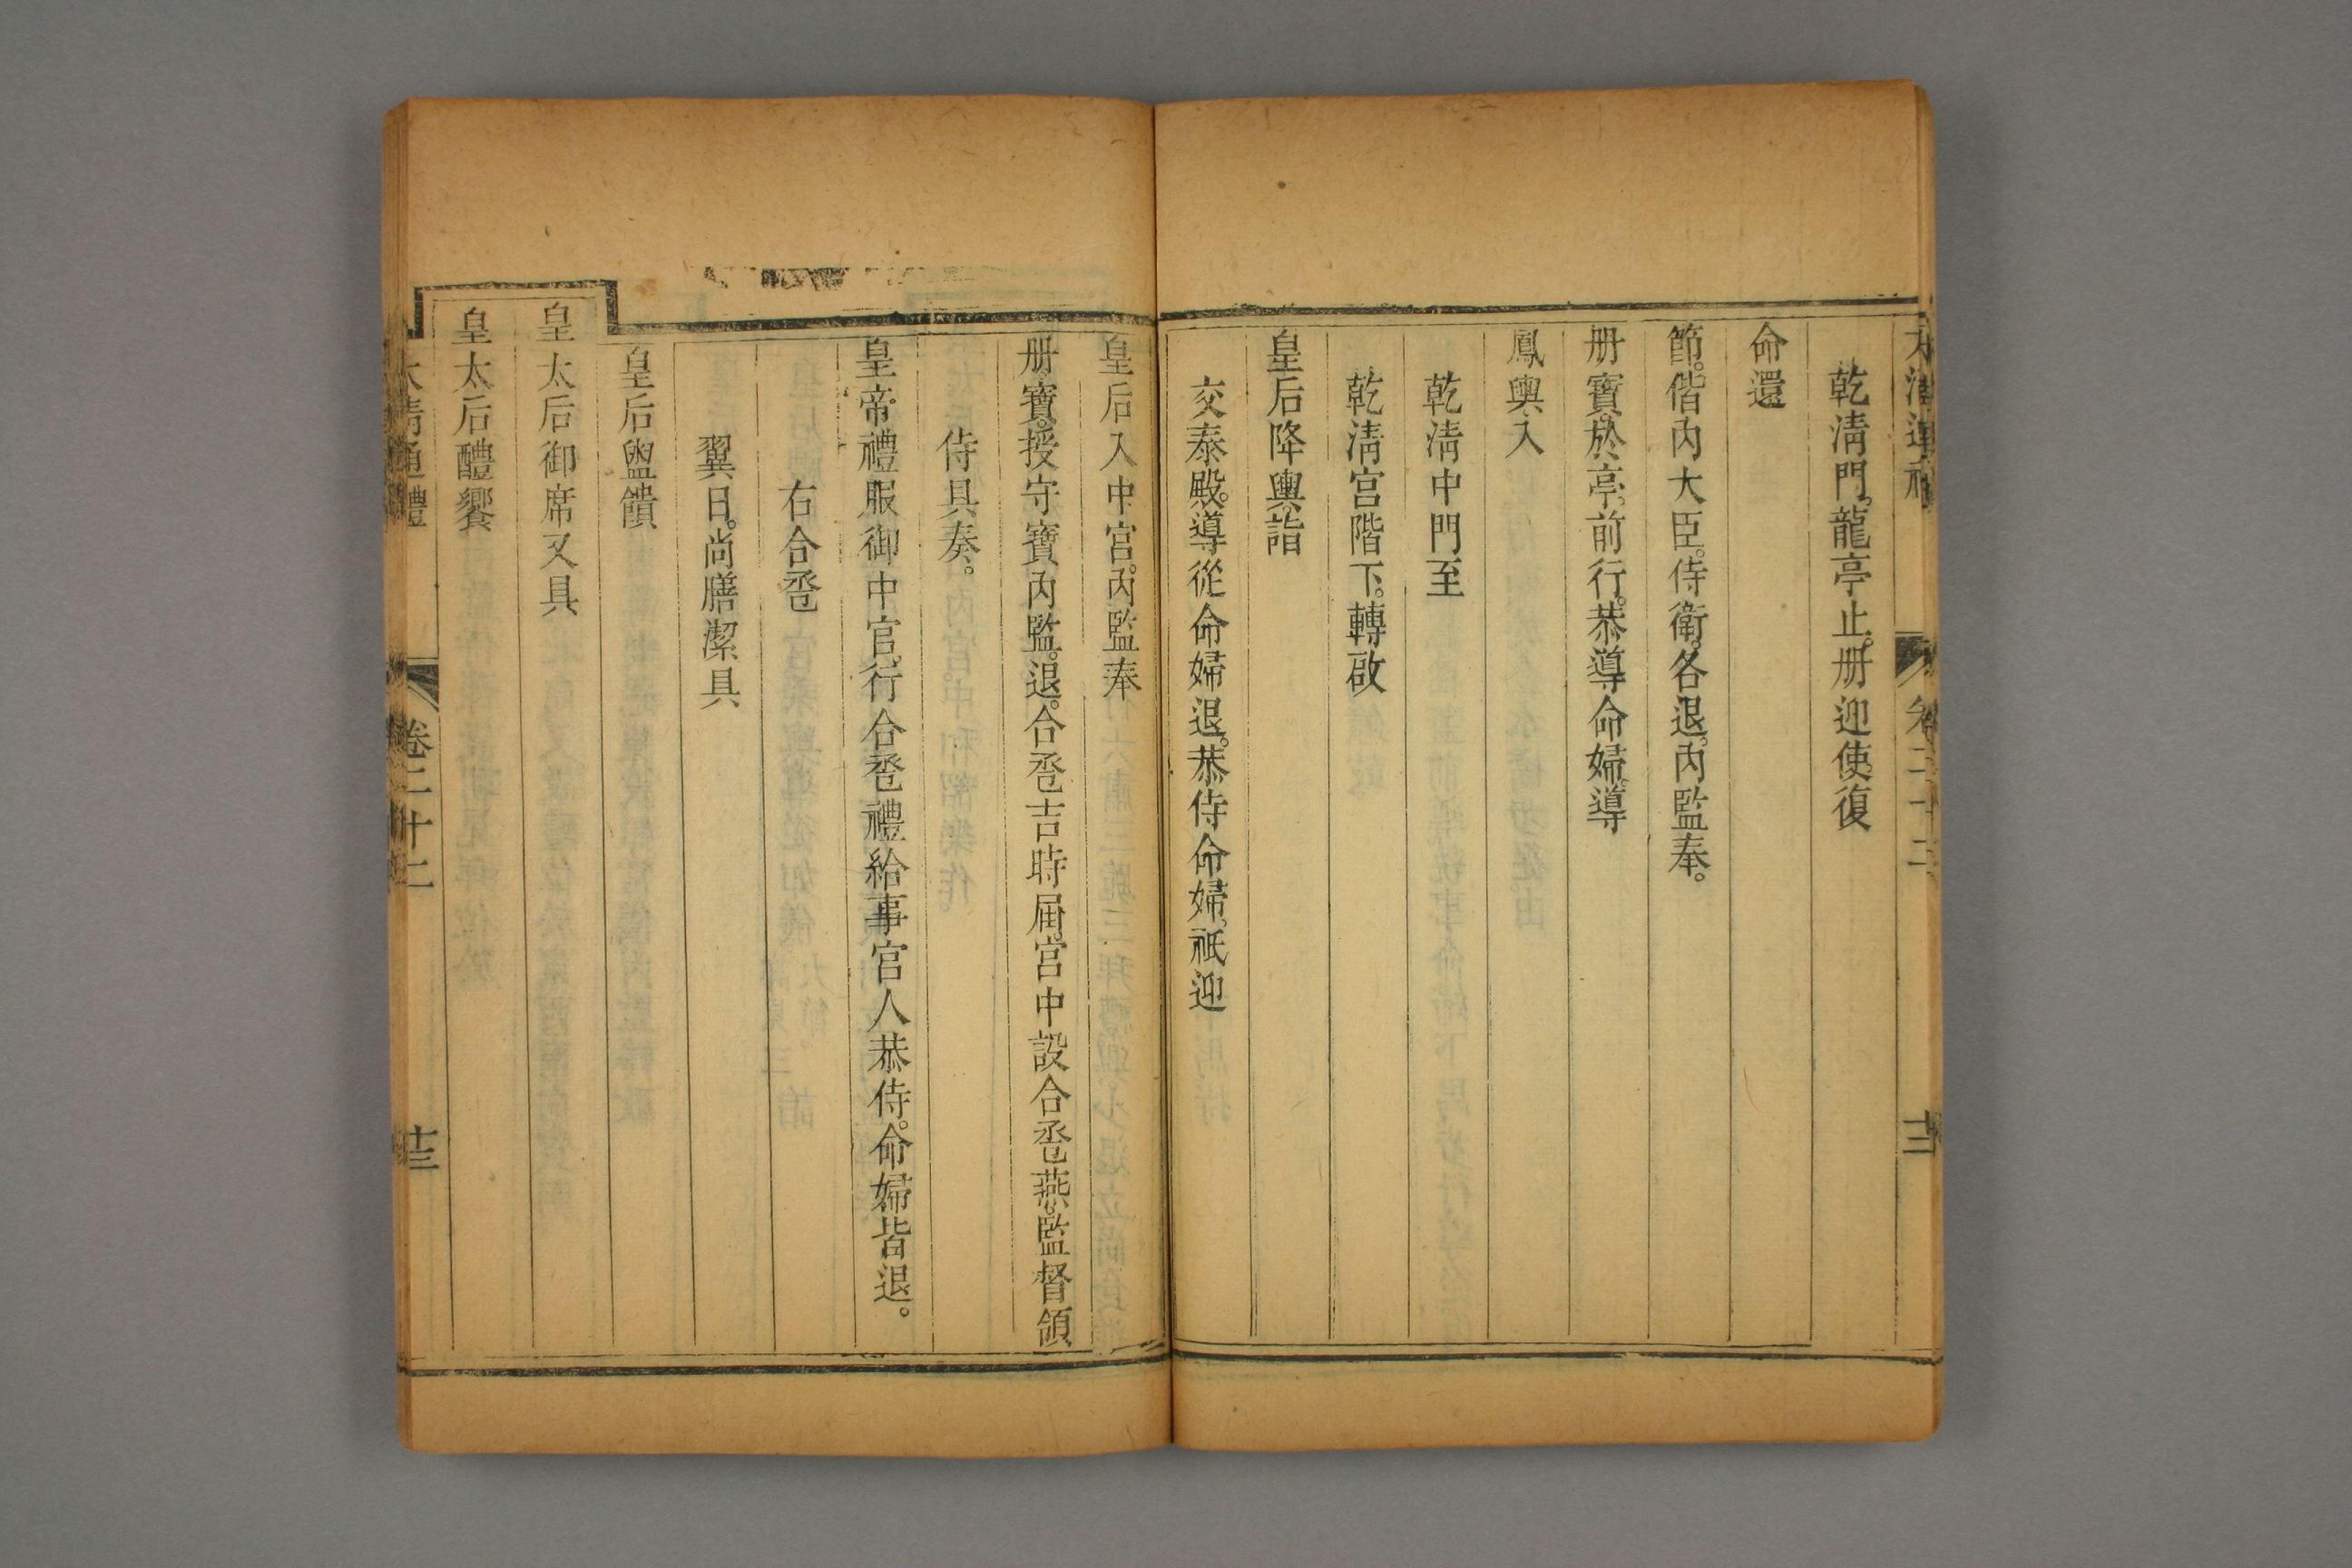 大清通禮 卷二十二 十三
乾清門。龍亭止。册迎使復
命還
節。偕內大臣。侍衛。各退。內監奉。
册寶於亭。前行。恭導命婦。導
鳳輿入
乾清中門至
乾清宮階下。轉啟
皇后降輿。詣
交泰殿。導從命婦退。恭侍命婦。祇迎
皇后入中宮。內監奉
册寶。授守寶內監。退。合巹吉時屆。宮中設合巹燕。監督領
侍具奏。
皇帝禮服御中宮。行合巹禮給事宮人恭侍。命婦皆退。
右合巹
翼日。尚膳潔具
皇后盥饋
皇太后御席又具
皇太后醴饗
大清通禮 卷二十二 十三